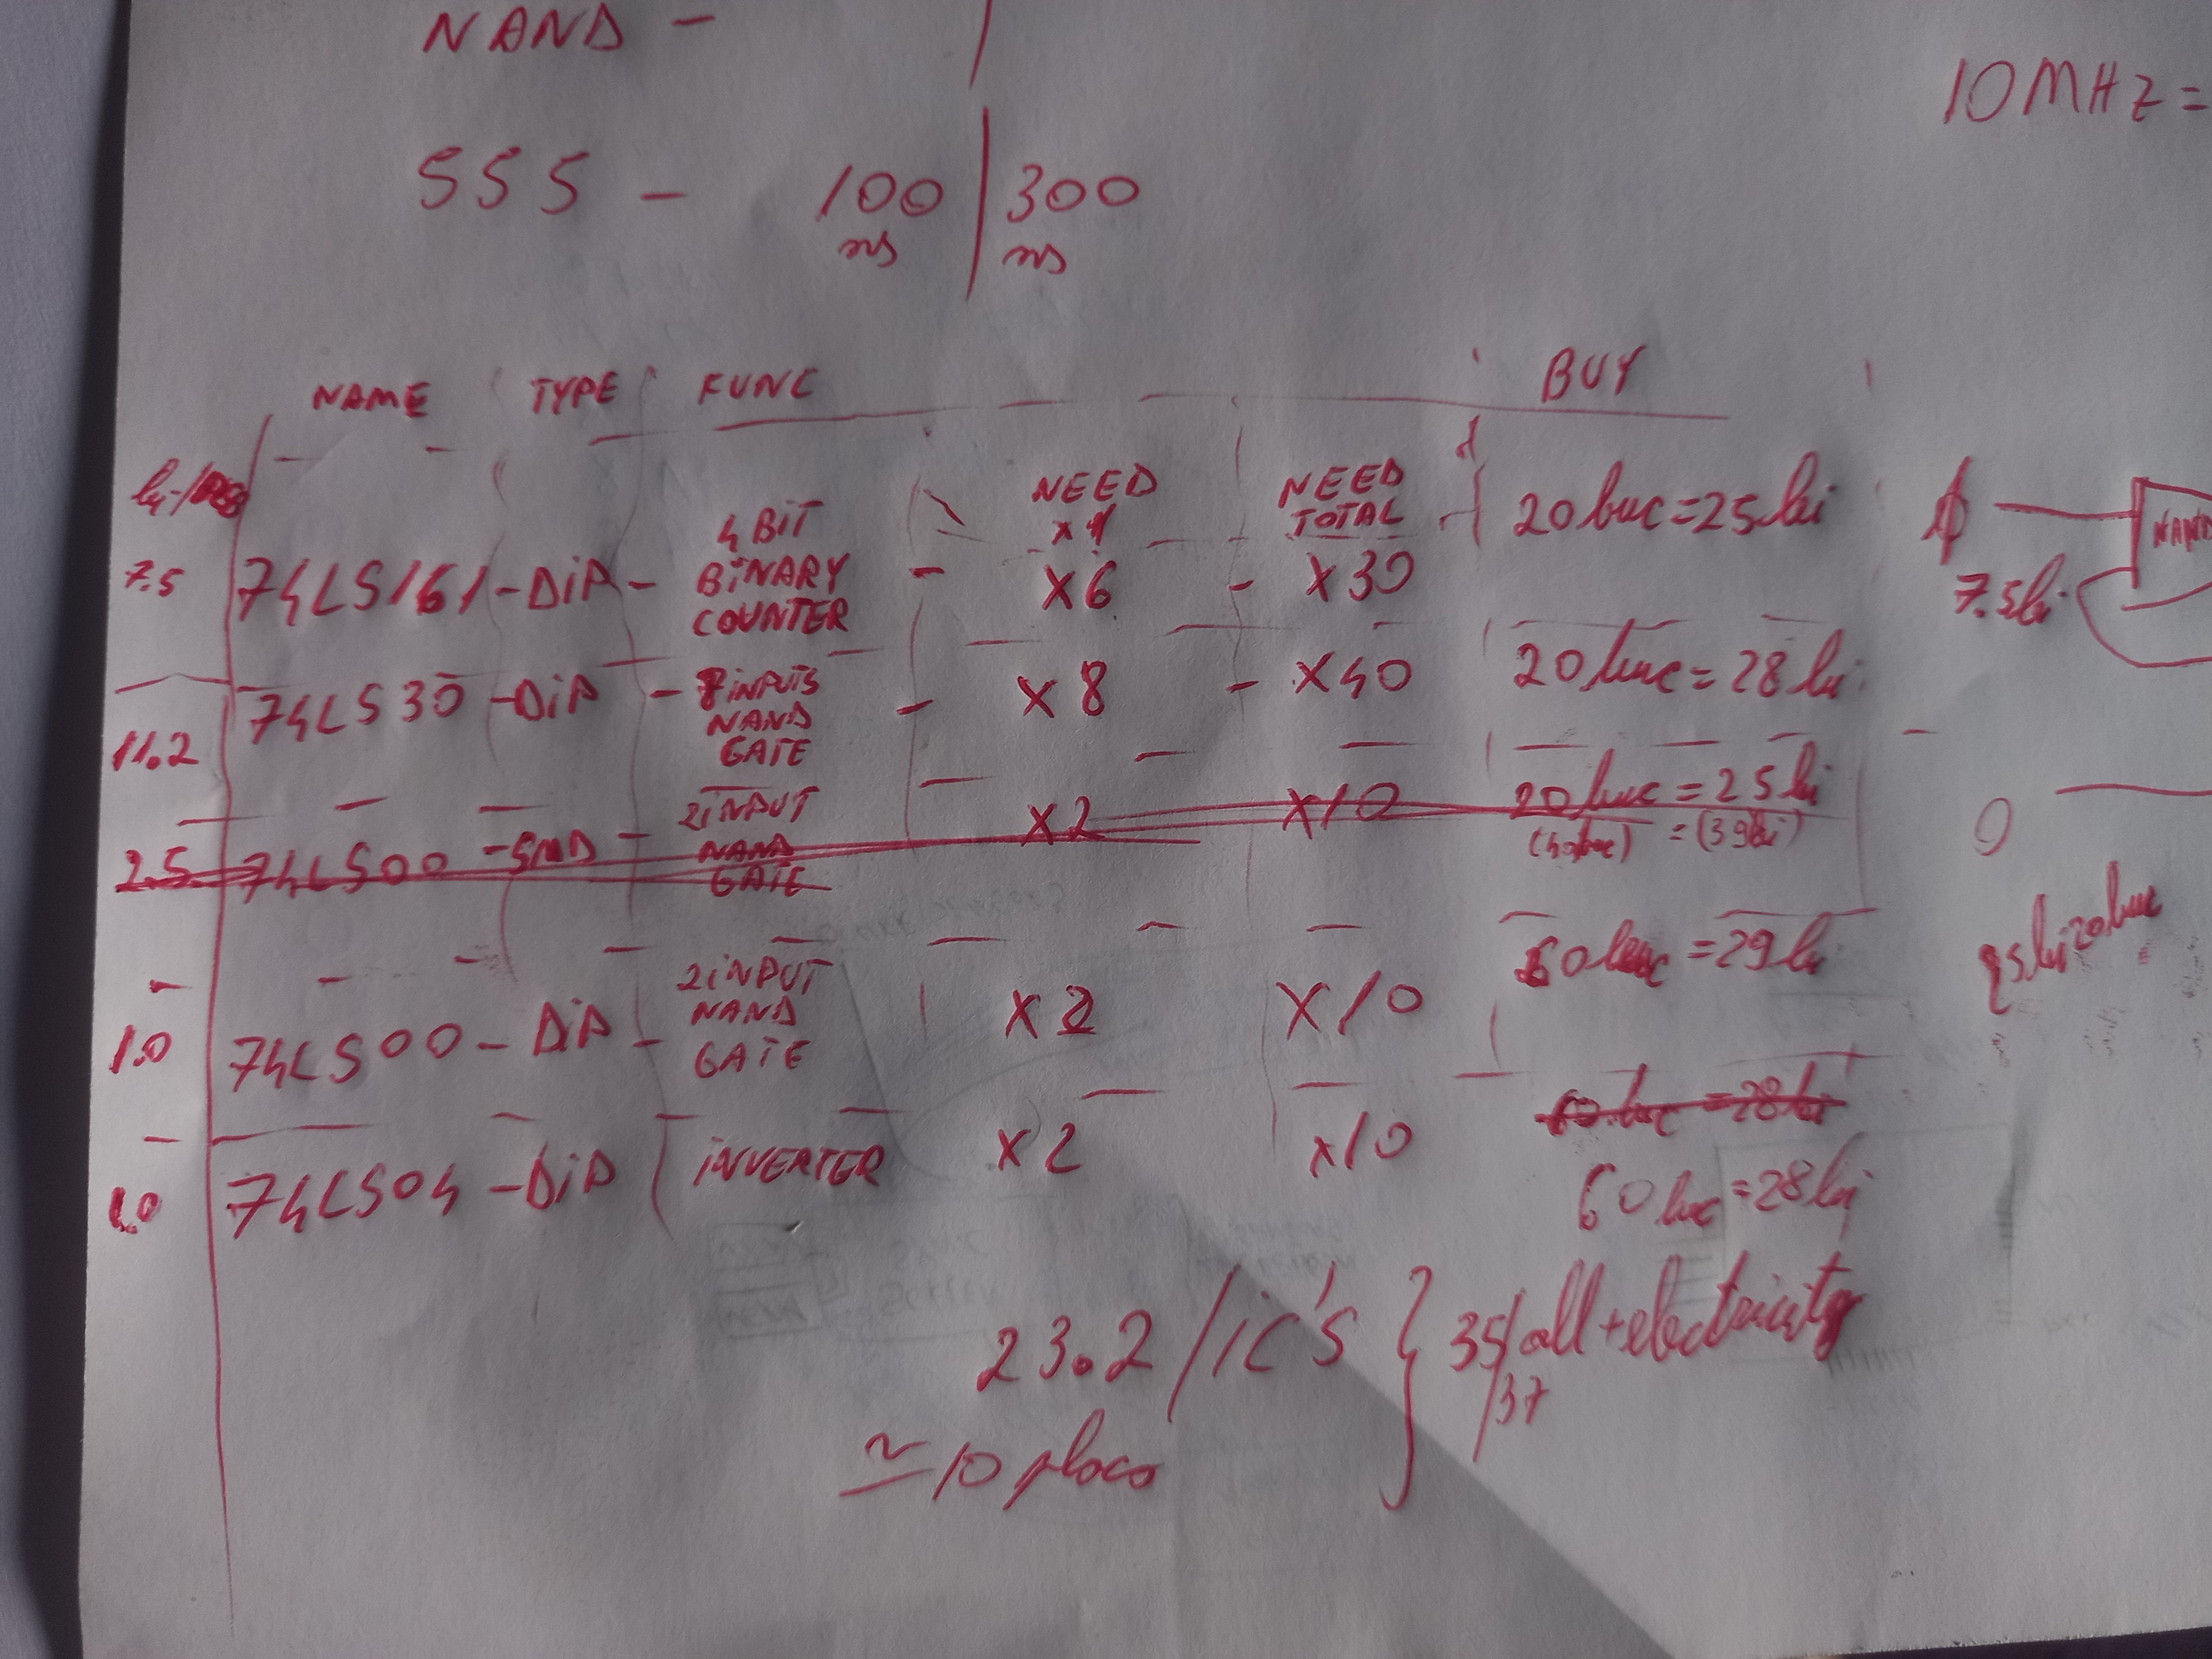 NAND -
555 - 100 | 300
ns ns
10MHz =
NAME TYPE FUNC NEED x1 NEED TOTAL BUY
7.5 74LS161 - DIP - 4 BIT BINARY COUNTER - x6 - x30 20buc = 25lei
11.2 74LS30 - DIP - 8 INPUTS NAND GATE - x8 - x40 20buc = 28lei
2.5 74LS00 - SMD - 2 INPUT NAND GATE x2 x10 20buc = 25lei
1.0 74LS00 - DIP - 2 INPUT NAND GATE x2 x10 60buc = 29lei
1.0 74LS04 - DIP INVERTER x2 x10 60buc = 28lei
60buc = 28lei
23.2 / IC'S 35/all + electricity
37
≃ 10 placo
7.5lei
NAND
0